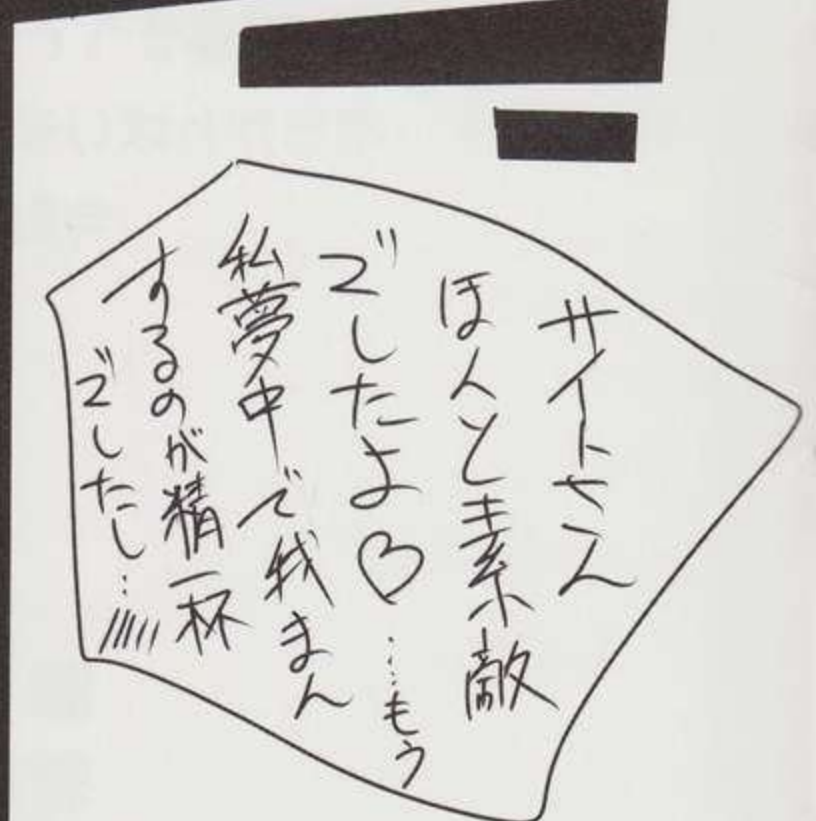 サイトさん
ほんと素敵
でしたよ♡……もう
私夢中で我まん
するのが精一杯
でしたし…/////